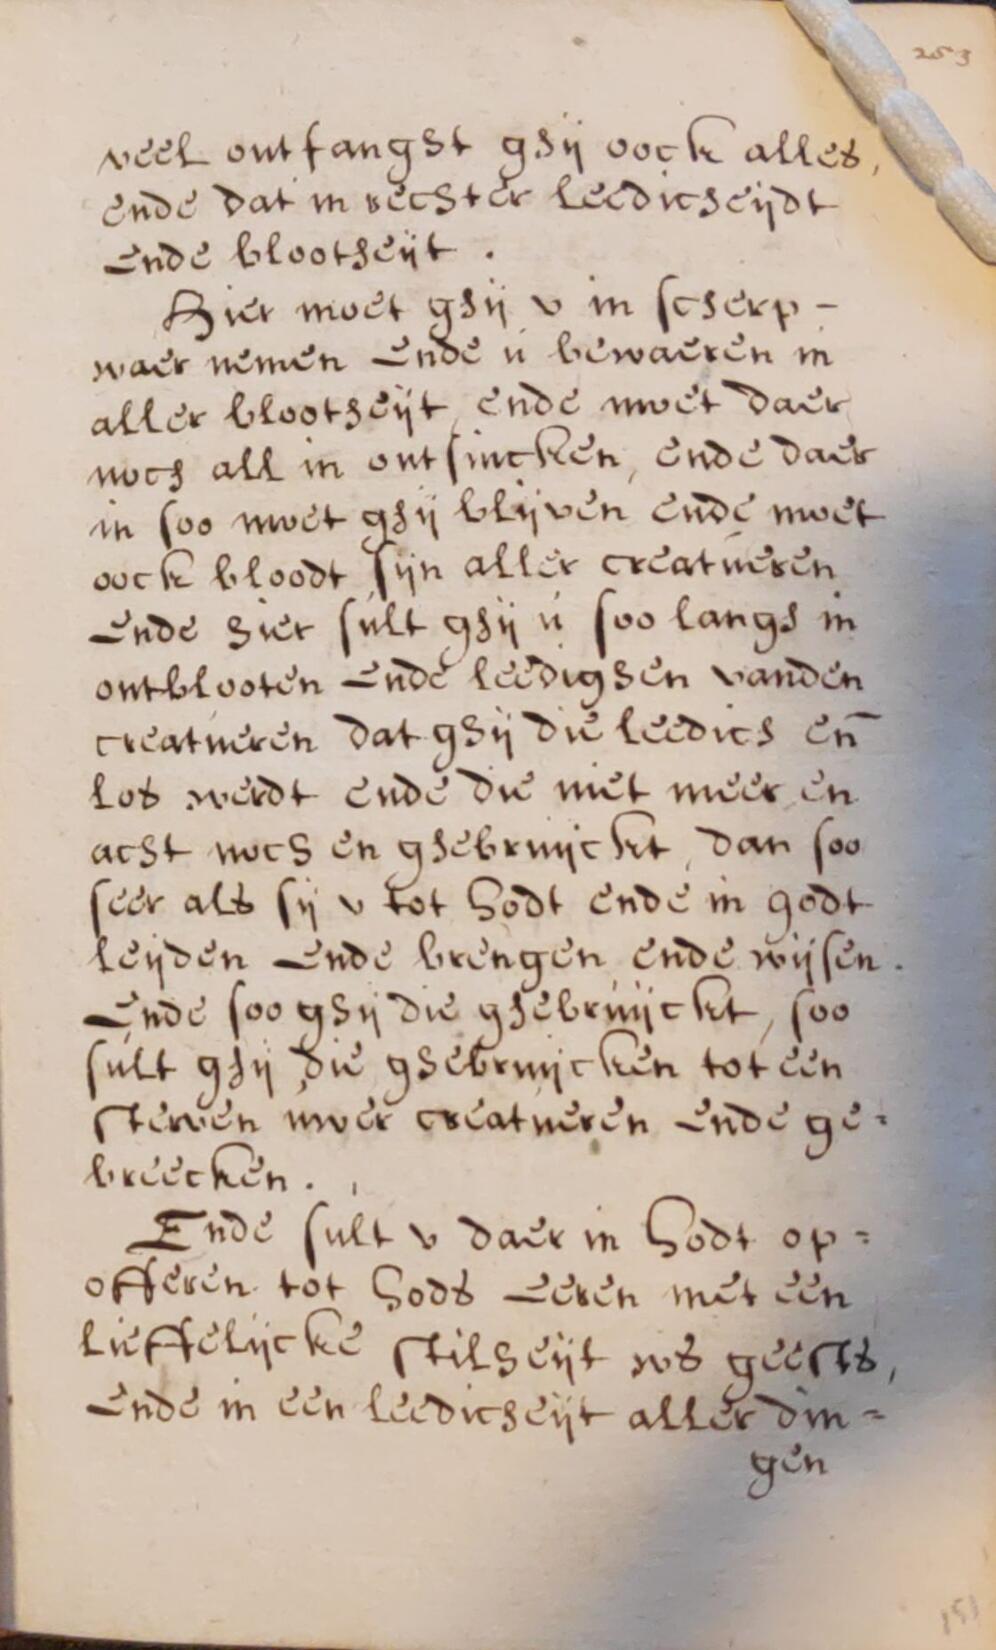 253
veel ontfanght ghij oock alles,
ende dat in rechter leedicheijdt
Ende blootheijt .
Hier moet ghij v in scherp -
waer nemen Ende ú bewaeren in
aller blootheijt, ende moet daer
noch all in ontsincken, ende daer
in soo moet ghij blijven ende moet
oock bloodt sijn aller creatueren
Ende hier súlt ghij ú soo langh in
ontblooten Ende leedighen vanden
creatueren dat ghij die leedich en̄
los werdt ende die niet meer en
acht noch en ghebruijckt, dan soo
seer als sij v tot Godt ende in godt
leijden Ende brengen ende wijsen .
Ende soo ghij die ghebruijckt, soo
súlt ghij die ghebruijcken tot een
sterven úwer creatueren Ende ge=
breecken .
Ende sult v daer in Godt op=
offeren tot Gods Eeren met een
lieffelijcke stilheijt ws geests,
Ende in een leedicheijt aller din=
gen
151